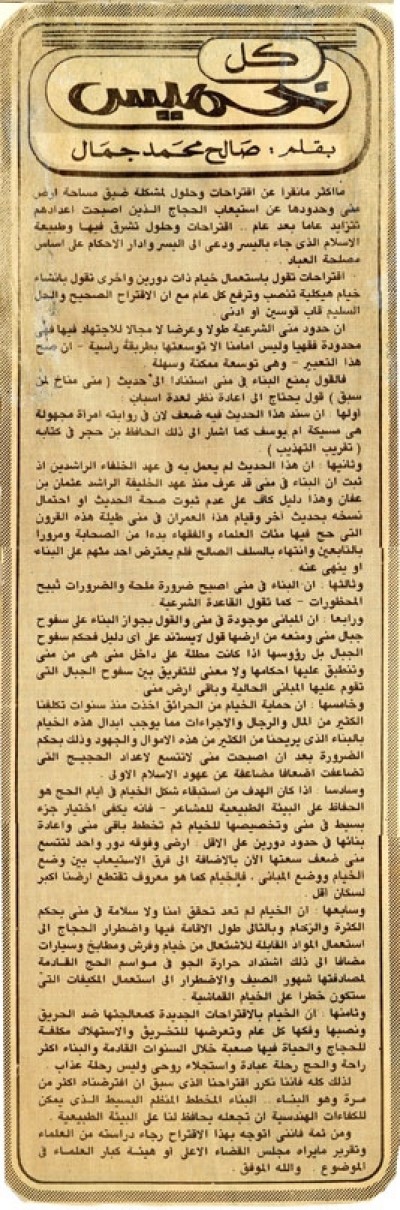 كل
خميس
بقلم : صالح محمد جمال
مااكثر مانقرأ عن اقتراحات وحلول لمشكلة ضيق مساحة ارض
منى وحدودها عن استيعاب الحجاج الذين اصبحت اعدادهم
تتزايد عاما بعد عام .. اقتراحات وحلول تشرق فيها وطبيعة
الاسلام الذى جاء باليسر ودعى الى اليسر وادار الاحكام على اساس
مصلحة العباد .
اقتراحات تقول باستعمال خيام ذات دورين واخرى تقول بانشاء
خيام هيكلية تنصب وترفع كل عام مع ان الاقتراح الصحيح والحل
السليم قاب قوسين او ادنى .
ان حدود منى الشرعية طولا وعرضا لا مجالا للاجتهاد فيها فهى
محدودة فقهيا وليس امامنا الا توسعتها بطريقة راسية - ان صح
هذا التعبير - وهى توسعة ممكنة وسهلة .
فالقول بمنع البناء فى منى استنادا الى حديث ( منى مناخ لمن
سبق ) قول يحتاج الى اعادة نظر لعدة اسباب :
اولها : ان سند هذا الحديث فيه ضعف لان فى روايته امرأة مجهولة
هى مسيكة ام يوسف كما اشار الى ذلك الحافظ بن حجر فى كتابه
( تقريب التهذيب ) .
وثانيها : ان هذا الحديث لم يعمل به فى عهد الخلفاء الراشدين اذ
ثبت ان البناء فى منى قد عرف منذ عهد الخليفة الراشد عثمان بن
عفان وهذا دليل كاف على عدم ثبوت صحة الحديث او احتمال
نسخه بحديث آخر وقيام هذا العمران فى منى طيلة هذه القرون
التى حج فيها مئات العلماء والفقهاء بدءا من الصحابة ومرورا
بالتابعين وانتهاء بالسلف الصالح فلم يعترض احد منهم على البناء
او ينهى عنه .
وثالثها : ان البناء فى منى اصبح ضرورة ملحة والضرورات تبيح
المحظورات - كما تقول القاعدة الشرعية .
ورابعا : ان المبانى موجودة فى منى والقول بجواز البناء على سفوح
جبال منى ومنعه من ارضها قول لايستند على أى دليل فحكم سفوح
الجبال بل رؤوسها اذا كانت مطلة على داخل منى هى من منى
وتنطبق عليها احكامها ولا معنى للتفريق بين سفوح الجبال التى
تقوم عليها المبانى الحالية وباقى ارض منى .
وخامسها : ان حماية الخيام من الحرائق اخذت منذ سنوات تكلفنا
الكثير من المال والرجال والاجراءات مما يوجب ابدال هذه الخيام
بالبناء الذى يريحنا من الكثير من هذه الاموال والجهود وذلك بحكم
الضرورة بعد ان اصبحت منى لاتتسع لاعداد الحجيج التى
تضاعفت اضعافا مضاعفة عن عهود الاسلام الاولى .
وسادسا : اذا كان الهدف من استبقاء شكل الخيام فى ايام الحج هو
الحفاظ على البيئة الطبيعية للمشاعر - فانه يكفى اختيار جزء
بسيط فى منى وتخصيصها للخيام ثم تخطط باقى منى واعادة
بنائها فى حدود دورين على الاقل : ارضى وفوقه دور واحد لتتسع
منى ضعف سعتها الآن بالاضافة الى فرق الاستيعاب بين وضع
الخيام ووضع المبانى ، فالخيام كما هو معروف تقتطع ارضا اكبر
لسكان اقل .
وسابعها : ان الخيام لم تعد تحقق أمنا ولا سلامة فى منى بحكم
الكثرة والزحام وبالتالى طول الاقامة فيها واضطرار الحجاج الى
استعمال المواد القابلة للاشتعال من خيام وفرش ومطابخ وسيارات
مضافا الى ذلك اشتداد حرارة الجو فى مواسم الحج القادمة
لمصادفتها شهور الصيف والاضطرار الى استعمال المكيفات التى
ستكون خطرا على الخيام القماشية .
وثامنها : ان الخيام بالاقتراحات الجديدة كمعالجتها ضد الحريق
ونصبها وفكها كل عام وتعرضها للتخريق والاستهلاك مكلفة
للحجاج والحياة فيها صعبة خلال السنوات القادمة والبناء اكثر
راحة والحج رحلة عبادة واستجلاء روحى وليس رحلة عذاب .
لذلك كله فاننا نكرر اقتراحنا الذى سبق ان افترضناه اكثر من
مرة وهو البناء .. البناء المخطط المنظم البسيط الذى يمكن
للكفاءات الهندسية ان تجعله يحافظ لنا على البيئة الطبيعية .
ومن ثمة فاننى اتوجه بهذا الاقتراح رجاء دراسته من العلماء
وتقرير مايراه مجلس القضاء الاعلى او هيئة كبار العلماء فى
الموضوع . والله الموفق .